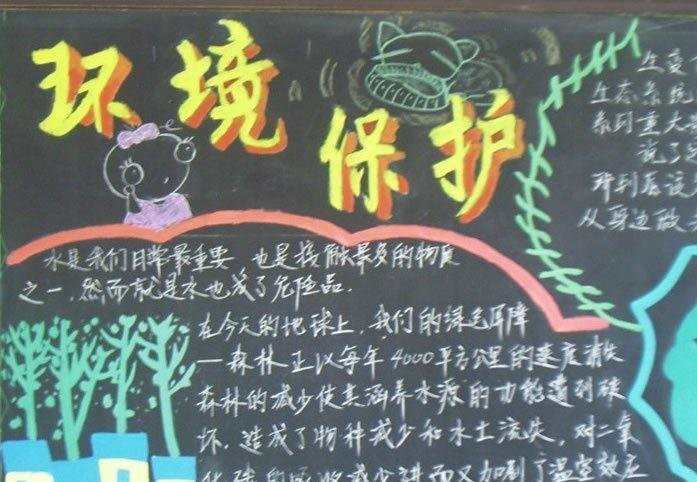 环境
保护
水是我们日常最重要、也是接触最多的物质
之一，然而就是水也成了危险品.
在今天的地球上，我们的绿色屏障
—森林正以每年4000平方公里的速度消失
森林的减少使其涵养水源的功能遭到破
坏，造成了物种减少和水土流失，对二氧
化碳的吸收减少进而又加剧了温室效应
生态系统
系列重大
从身边做